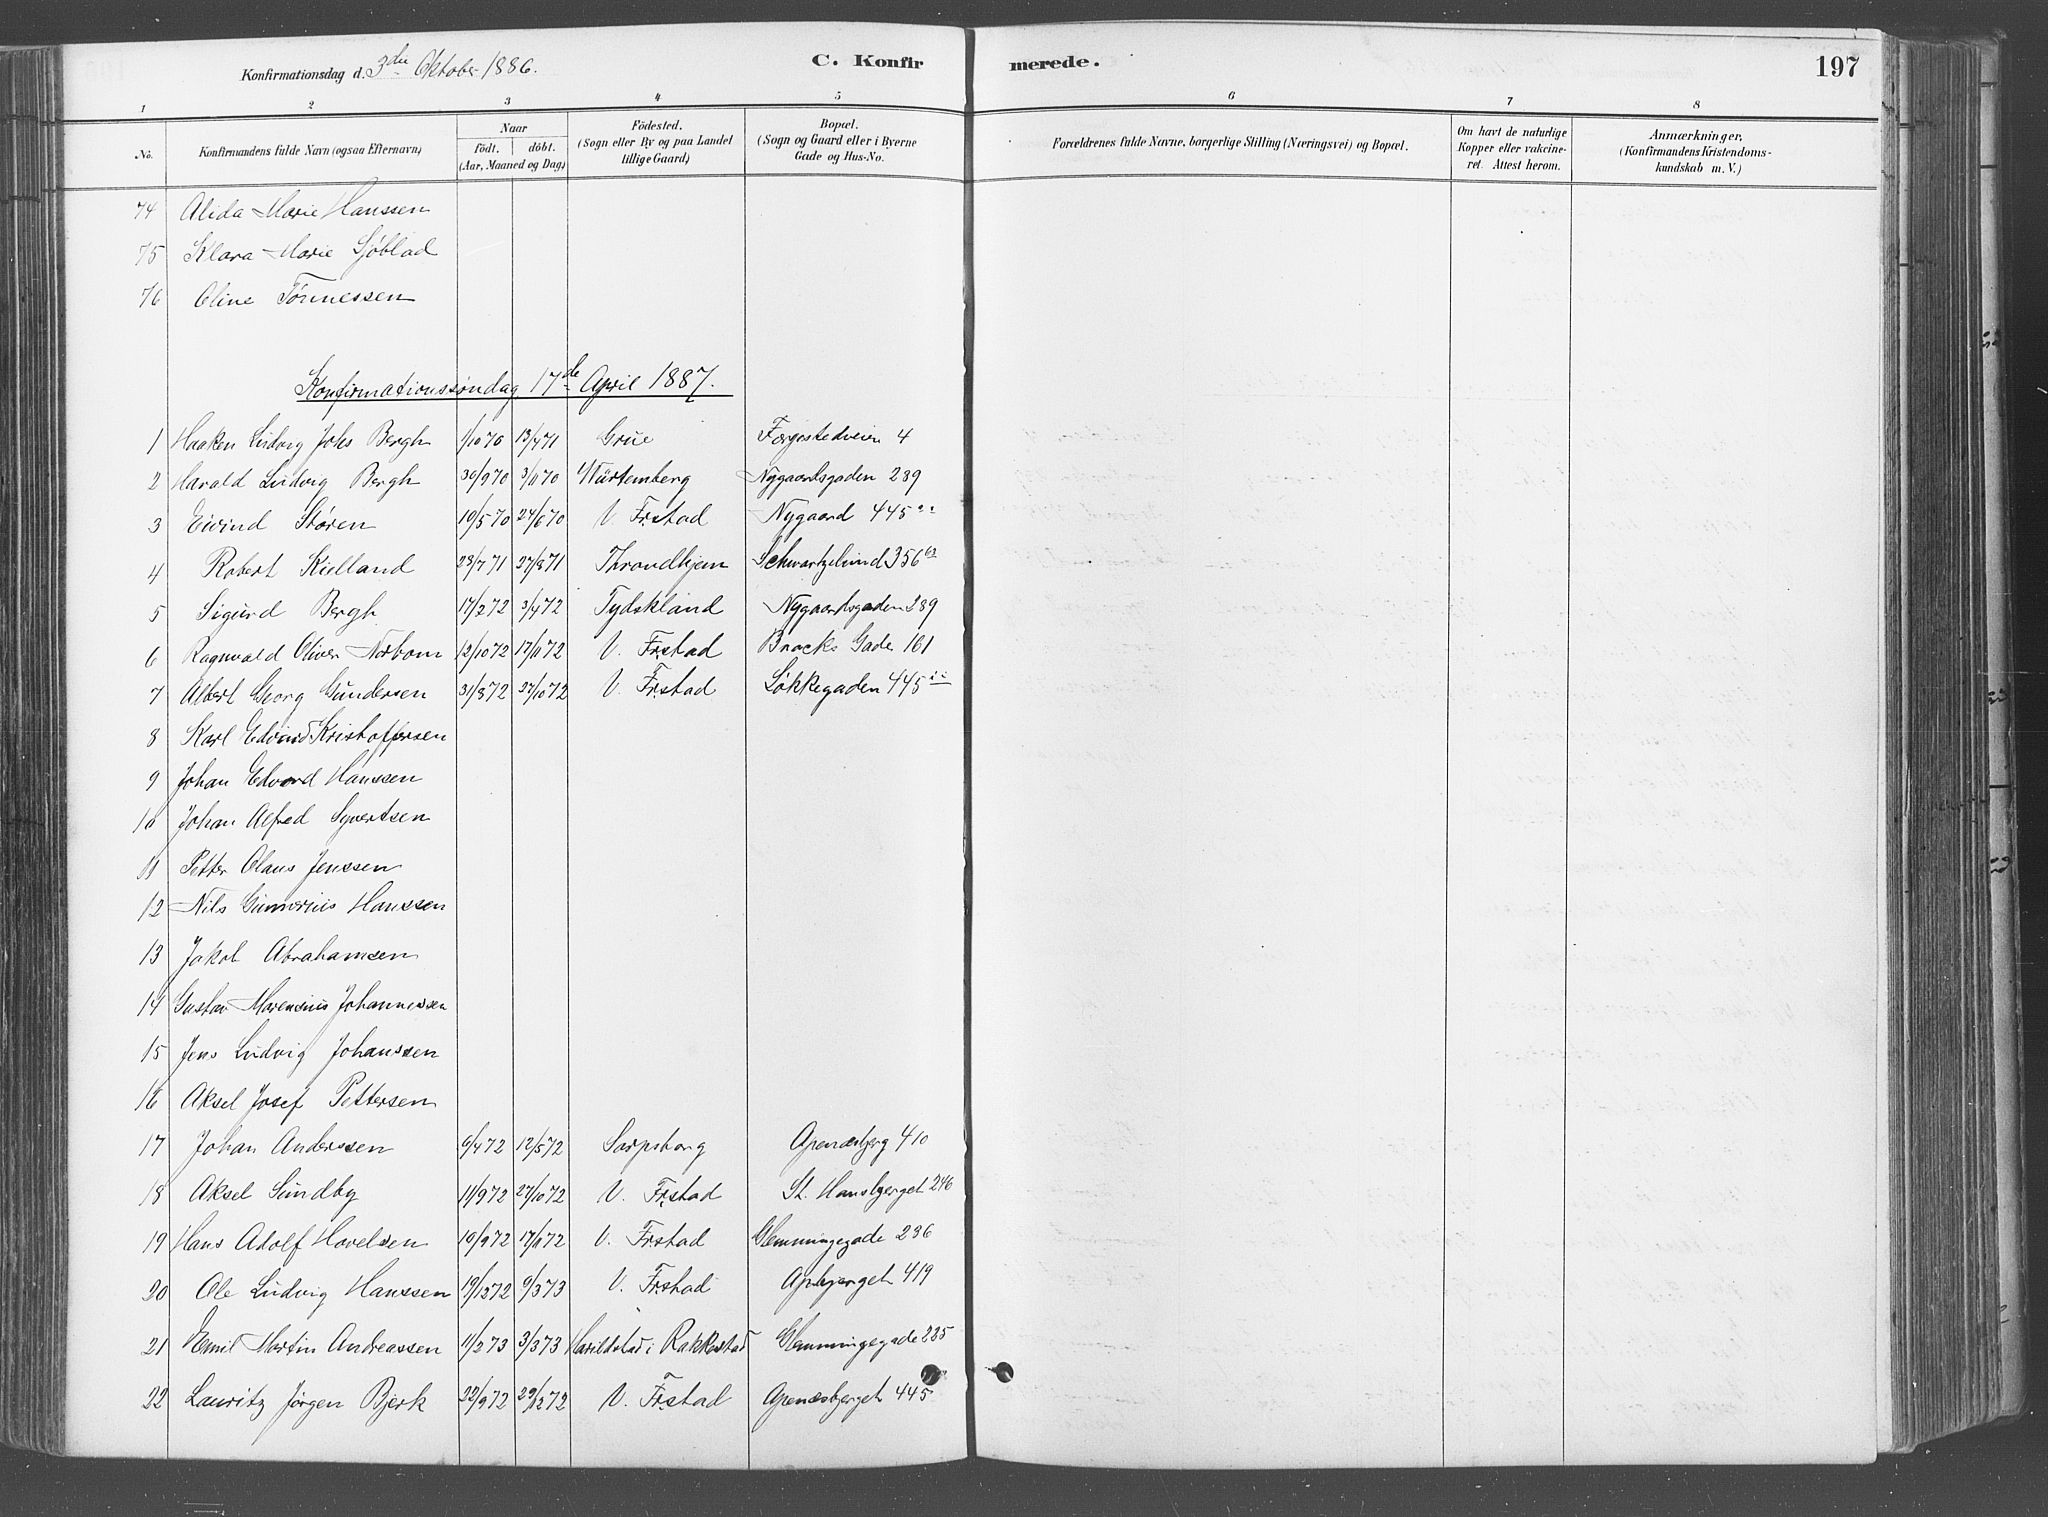 Konfirmationsdag d. 3die Oktober 1886.
C. Konfirmerede.
197
1 2 3 4 5 6 7 8
No.
Konfirmandens fulde Navn (ogsaa Efternavn)
Naar
födt. döbt.
(Aar, Maaned og Dag)
Födested.
(Sogn eller By og paa Landet
tillige Gaard)
Bopæl.
(Sogn og Gaard eller i Byerne
Gade og Hus-No.
Forældrenes fulde Navne, borgerlige Stilling (Næringsvei) og Bopæl.
Om havt de naturlige
Kopper eller vakcine-
ret. Attest herom.
Anmærkninger.
(Konfirmandens Kristendoms-
kundskab m. V.)
74 Alida Marie Hanssen
75 Klara Marie Sjöblad
76 Oline Tönnessen
Konfirmationssøndag 17de April 1887.
1 Haaken Ludvig Johs Bergh 1/10 70 13/4 71 Grue Færgestedveien 4
2 Harald Ludvig Bergh 30/9 70 3/11 70 Würtemberg Nygaardsgaden 289
3 Eivind Støren 10/5 70 24/6 70 V. Frstad Nygaard 445
4 Robert Kielland 23/7 71 27/8 71 Throndhjem Schwartzelund 356
5 Sigurd Bergh 17/2 72 3/4 72 Tydskland Nygaardsgaden 289
6 Ragnvald Oliver Norbom 12/10 72 17/11 72 V. Frstad Brocks Gade 161
7 Albert Georg Gundersen 31/8 72 27/10 72 V. Frstad Løkkegaden 445
8 Karl Edvind Kristoffersen
9 Johan Edvard Hanssen
10 Johan Alfred Syvertsen
11 Petter Olaus Jenssen
12 Nils Gunerius Hanssen
13 Jakob Abrahamsen
14 Gustav Marensius Johannessen
15 Jens Ludvig Johanssen
16 Aksel Josef Pettersen
17 Johan Anderssen 6/4 72 12/5 72 Sarpsborg Apenæsbjerg 410
18 Aksel Sundby 11/9 72 27/10 72 V. Frstad St. Hansbjerget 246
19 Hans Adolf Hovelsen 10/9 72 17/11 72 V. Frstad Glemmingegade 236
20 Ole Ludvig Hanssen 19/12 72 9/3 73 V. Frstad Apbjerget 419
21 Emil Martin Andreassen 11/2 73 3/3 73 Harildstad i Rakkestad Glemmingegade 225
22 Lauritz Jørgen Bjerk 22/9 72 29/12 72 V. Frstad Apenæsbjerget 445